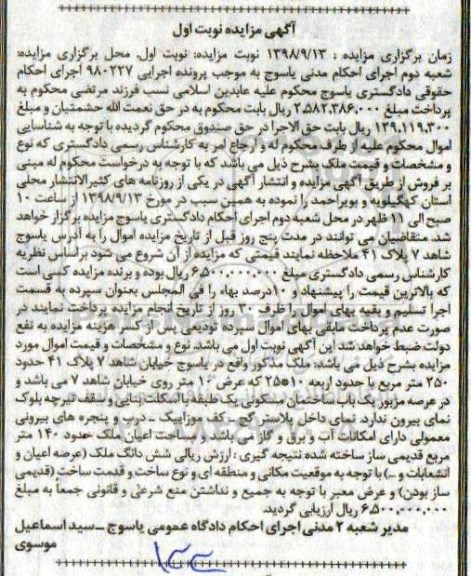 آگهی مزایده نوبت اول
زمان برگزاری مزایده : ۱۳۹۸/۹/۱۳ نوبت مزایده: نوبت اول. محل برگزاری مزایده:
شعبه دوم اجرای احکام مدنی یاسوج به موجب پرونده اجرایی ۹۸۰۲۲۷ اجرای احکام
حقوقی دادگستری یاسوج محکوم علیه عابدین اسلامی نسب فرزند مرتضی محکوم به
پرداخت مبلغ ۲،۵۸۲،۳۸۶،۰۰۰ ریال بابت محکوم به در حق نعمت الله حشمتیان و مبلغ
۱۳۹،۱۱۹،۳۰۰ ریال بابت حق الاجرا در حق صندوق محکوم گردیده با توجه به شناسایی
اموال محکوم علیه از طرف محکوم له و ارجاع امر به کارشناس رسمی دادگستری که نوع
و مشخصات و قیمت ملک بشرح ذیل می باشد که با توجه به درخواست محکوم له مبنی
بر فروش از طریق آگهی مزایده و انتشار آگهی در یکی از روزنامه های کثیرالانتشار محلی
استان کهگیلویه و بویراحمد را نموده به همین سبب در مورخ ۱۳۹۸/۹/۱۳ از ساعت ۱۰
صبح الی ۱۱ ظهر در محل شعبه دوم اجرای احکام دادگستری یاسوج مزایده برگزار خواهد
شد. متقاضیان می توانند در مدت پنج روز قبل از تاریخ مزایده اموال را به آدرس یاسوج
شاهد ۷ پلاک ۴۱ ملاحظه نمایند قیمتی که مزایده از آن شروع می شود براساس نظریه
کارشناس رسمی دادگستری مبلغ ۶،۵۰۰،۰۰۰،۰۰۰ ریال بوده و برنده مزایده کسی است
که بالاترین قیمت را پیشنهاد و ۱۰درصد بهاء را فی المجلس بعنوان سپرده به قسمت
اجرا تسلیم و بقیه بهای اموال را ظرف ۳۰ روز از تاریخ انجام مزایده پرداخت نمایند در
صورت عدم پرداخت مابقی بهای اموال سپرده تودیعی پس از کسر هزینه مزایده به نفع
دولت ضبط خواهد شد این آگهی نوبت اول می باشد. نوع و مشخصات و قیمت اموال مورد
مزایده بشرح ذیل می باشد: ملک مذکور واقع در یاسوج خیابان شاهد ۷ پلاک ۴۱ حدود
۲۵۰ متر مربع با حدود اربعه ۱۰*۲۵ که عرض ۱۰ متر روی خیابان شاهد ۷ می باشد و
در عرصه مزبور یک باب ساختمان مسکونی یک طبقه با اسکلت بنایی و سقف تیرچه بلوک
نمای بیرون ندارد. نمای داخل پلاستر گچ - کف موزاییک - درب و پنجره های بیرونی
معمولی دارای امکانات آب و برق و گاز می باشد و مساحت اعیان ملک حدود ۱۴۰ متر
مربع قدیمی ساز ساخته شده نتیجه گیری : ارزش ریالی شش دانگ ملک (عرصه اعیان و
انشعابات و ...) با توجه به موقعیت مکانی و منطقه ای و نوع ساخت و قدمت ساخت (قدیمی
ساز بودن) و عرض معبر با توجه به جمیع و نداشتن منع شرعی و قانونی جمعاً به مبلغ
۶،۵۰۰،۰۰۰،۰۰۰ ریال ارزیابی گردید.
مدیر شعبه ۲ مدنی اجرای احکام دادگاه عمومی یاسوج - سید اسماعیل
موسوی